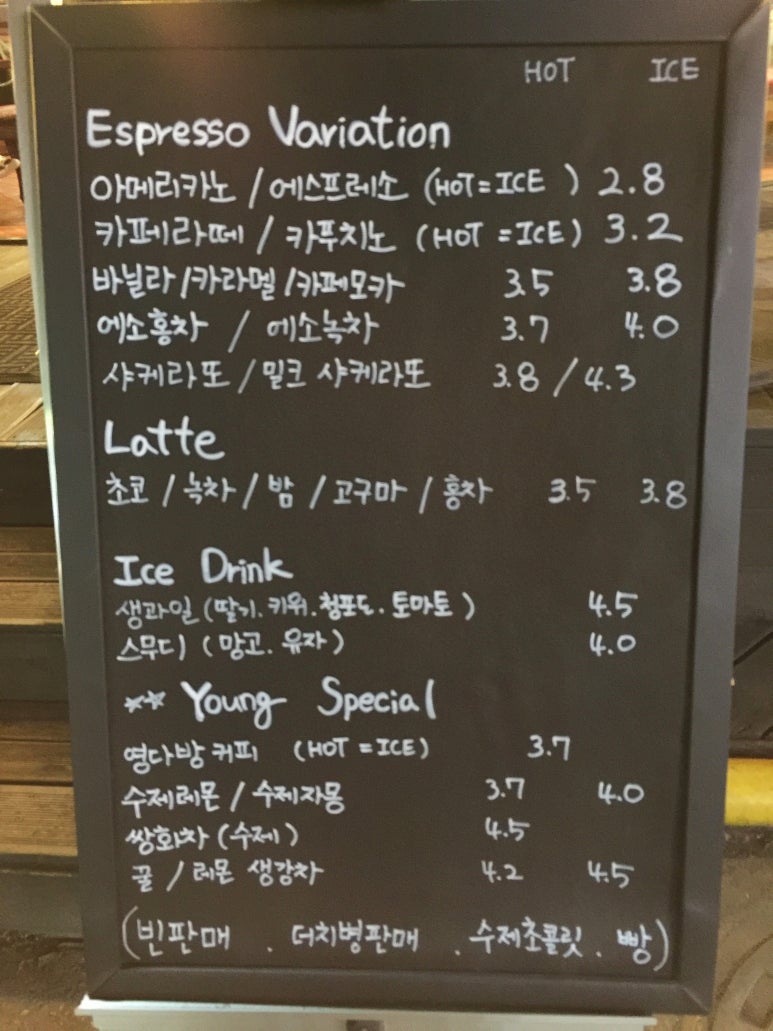 HOT ICE
Espresso Variation
아메리카노 / 에스프레소 (HOT = ICE ) 2.8
카페라떼 / 카푸치노 (HOT = ICE) 3.2
바닐라 / 카라멜 / 카페모카 3.5 3.8
에소홍차 / 에소녹차 3.7 4.0
샤케라또 / 밀크 샤케라또 3.8 / 4.3
Latte
초코 / 녹차 / 밤 / 고구마 / 홍차 3.5 3.8
Ice Drink
생과일 (딸기. 키위. 청포도. 토마토 ) 4.5
스무디 ( 망고. 유자 ) 4.0
** Young Special
영다방 커피 (HOT = ICE) 3.7
수제레몬 / 수제자몽 3.7 4.0
쌍화차 (수제) 4.5
꿀 / 레몬 생강차 4.2 4.5
(빈판매 . 더치병판매 . 수제초콜릿 . 빵)